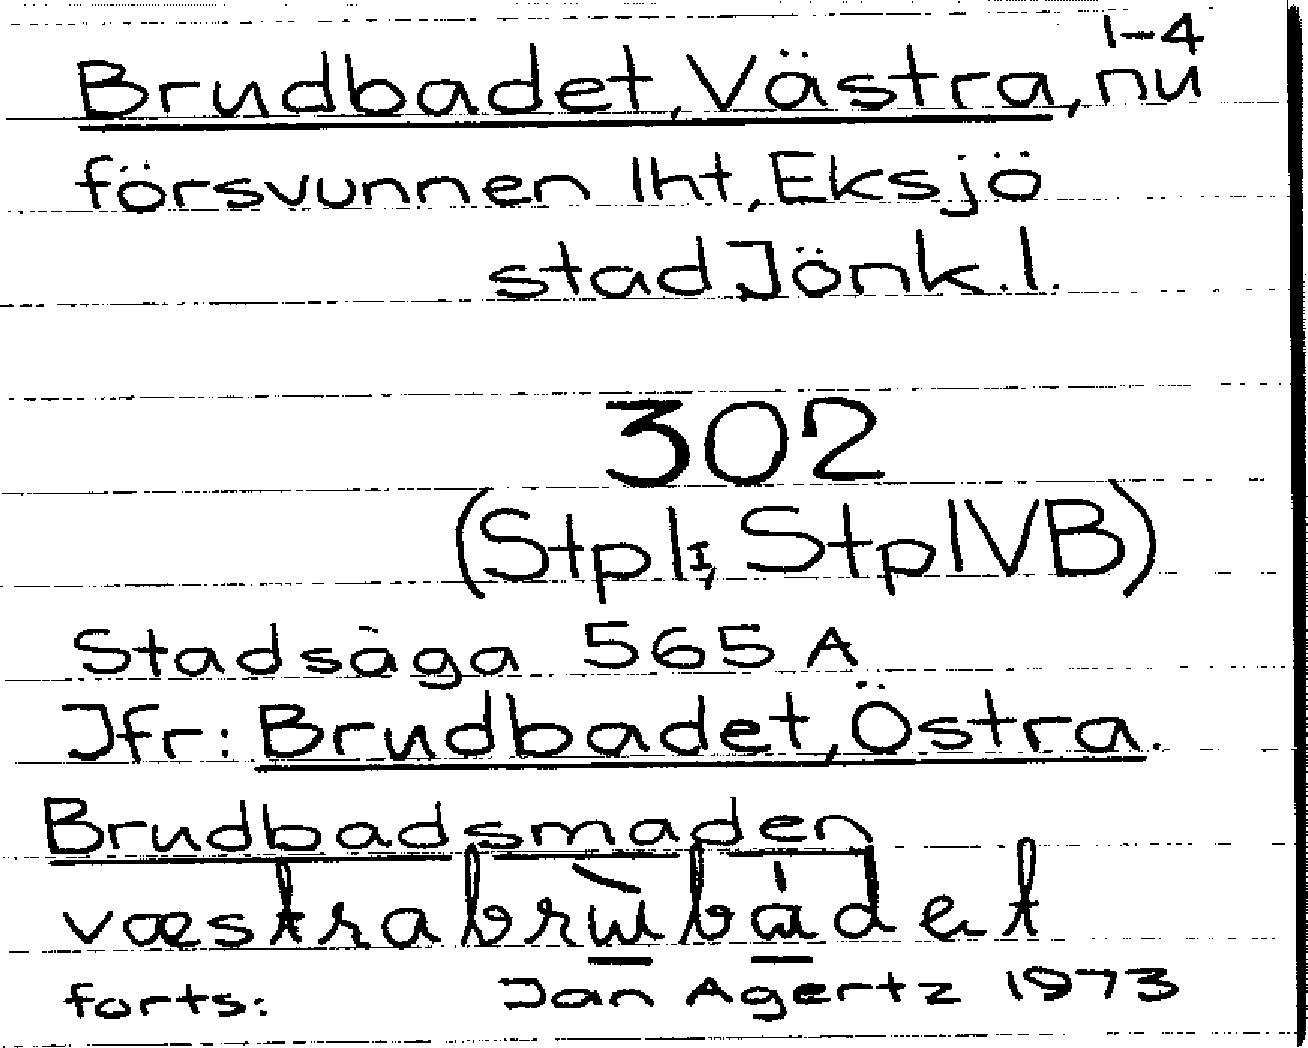 1-4
Brudbadet, Västra, nu
försvunnen lht, Eksjö
stad Jönk.l.
302
(Stpl II, Stpl IVB)
Stadsäga 565 A
Jfr: Brudbadet, Östra.
Brudbadsmaden
forts: Jan Agertz 1973